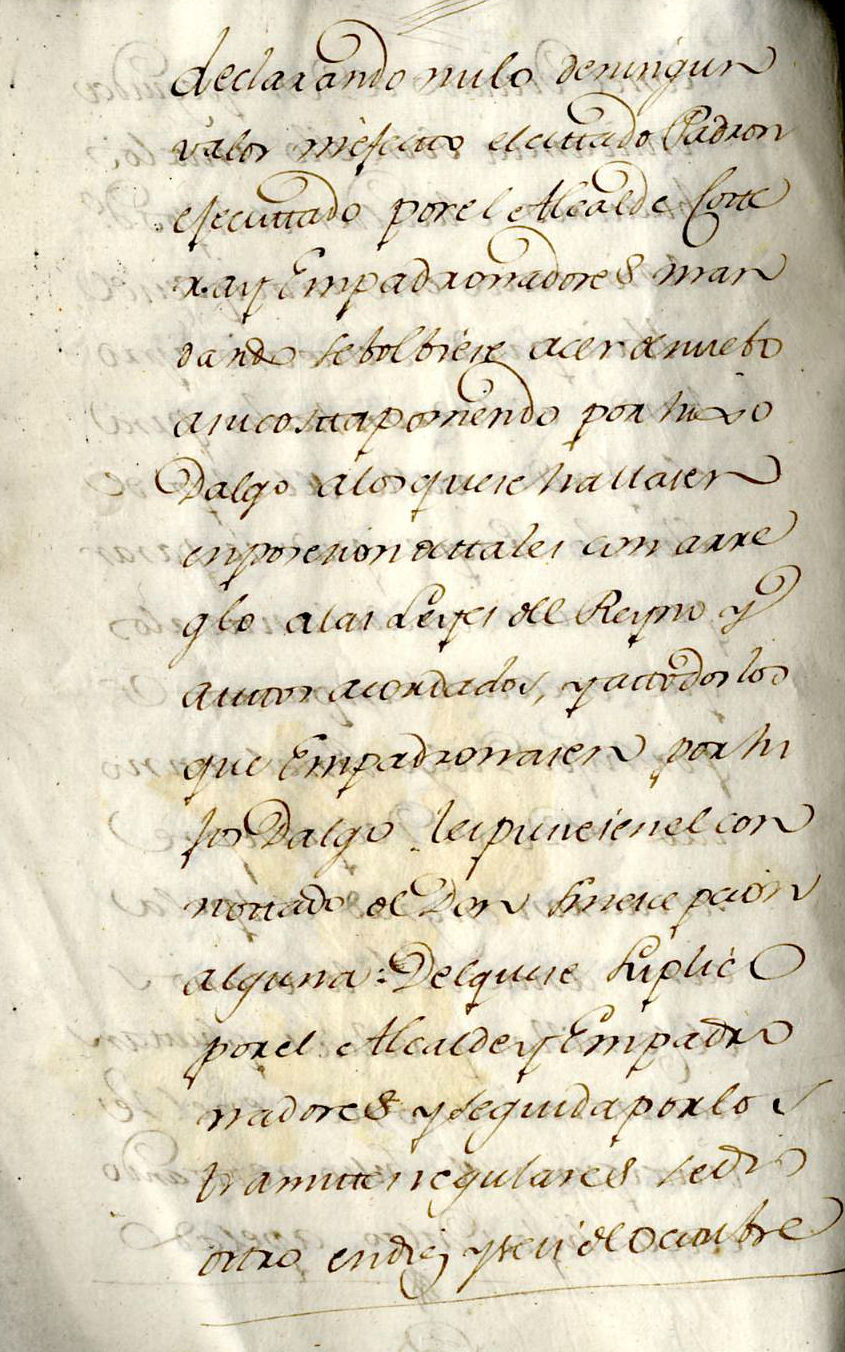 declarando nulo deningun
valor niefecto elcittado Padron
efecuttado porel Alcalde Corte
xa y Empadronadores man
dando sebolbiese acer denuebo
asucosttaponiendo por hixo
Dalgo alosquese hallasen
enposesion dettales con arre
glo alas Leyes del Reyno y
auttos acordados, yattodos los
que Empadronasen por hi
jos Dalgo lespusiesenel con
nottado del Don sinescepcion
alguna: Delquese suplicó
porel Alcalde y Empadro
nadores y seguida por los
tramittes regulares sedio
ottro endiez yseis de Octtubre